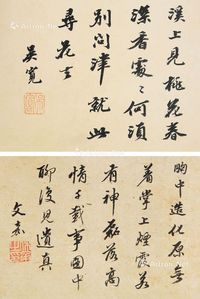 溪上見桃花春
深香處處何須
別問津就此
尋花去
吳寬
胸中造化原無
著掌上煙霞若
有神
高
情千載事圖中
聊復見遺真